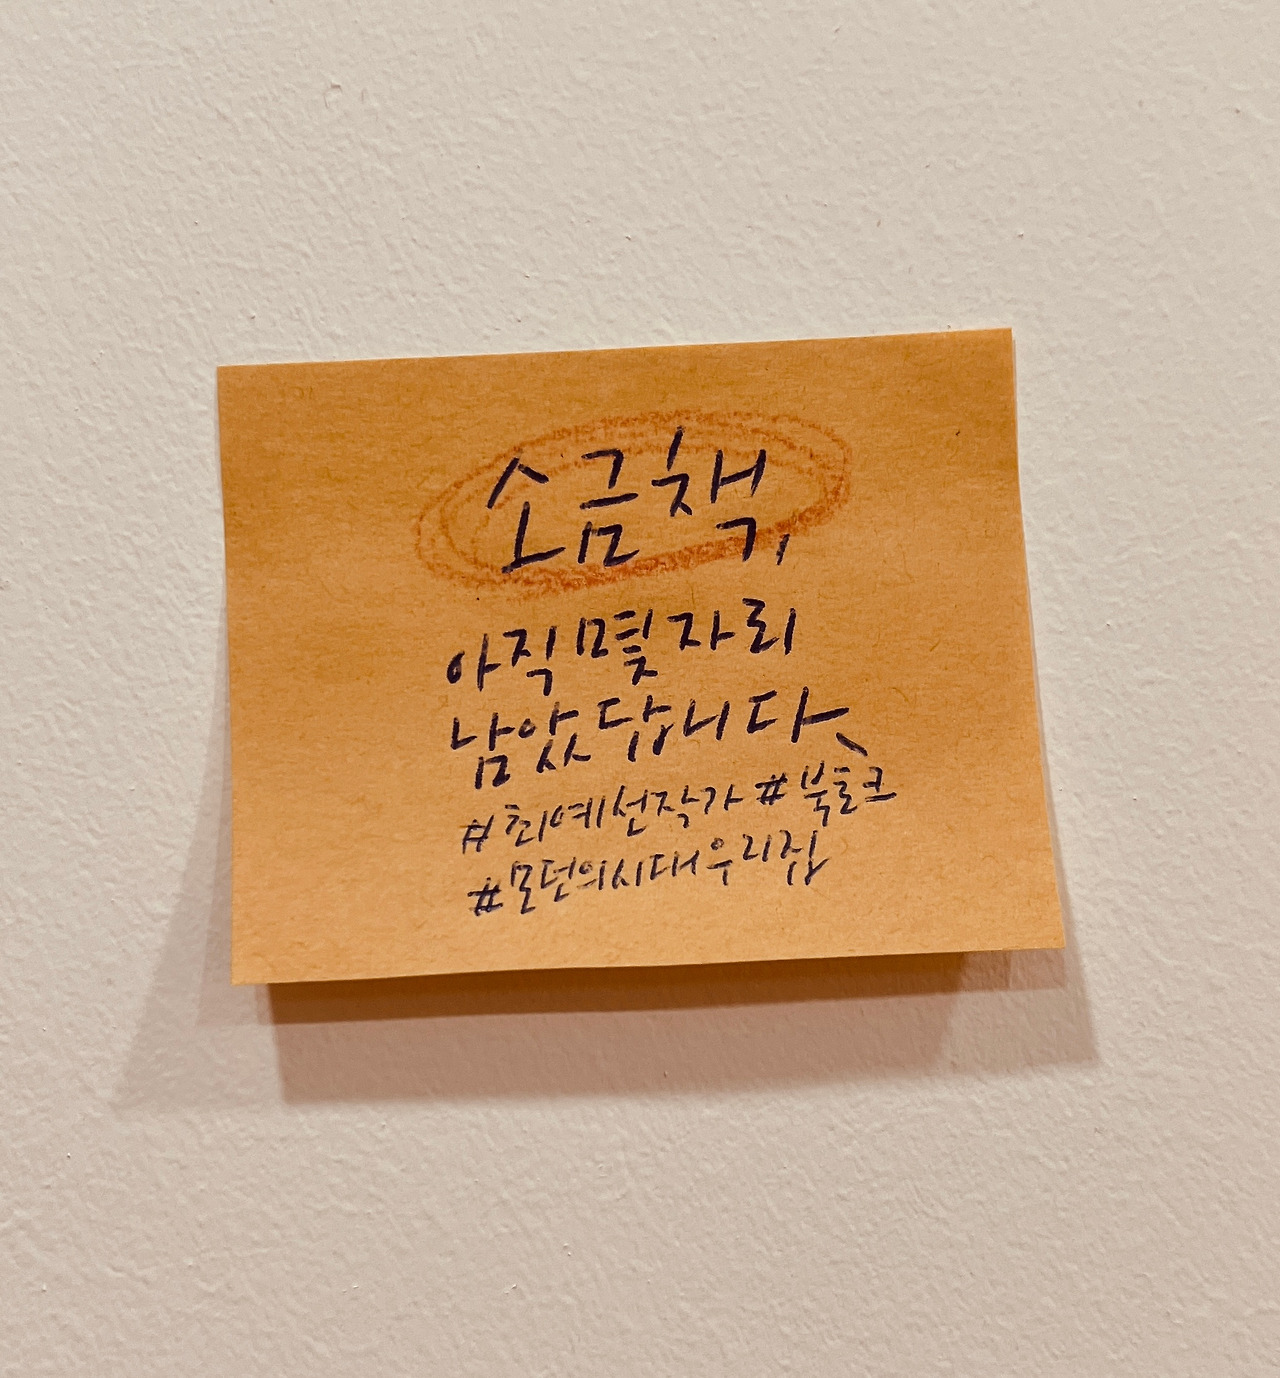 소금책,
아직 몇 자리
남았답니다.
#최예선작가 #북토크
#모던의시대우리집